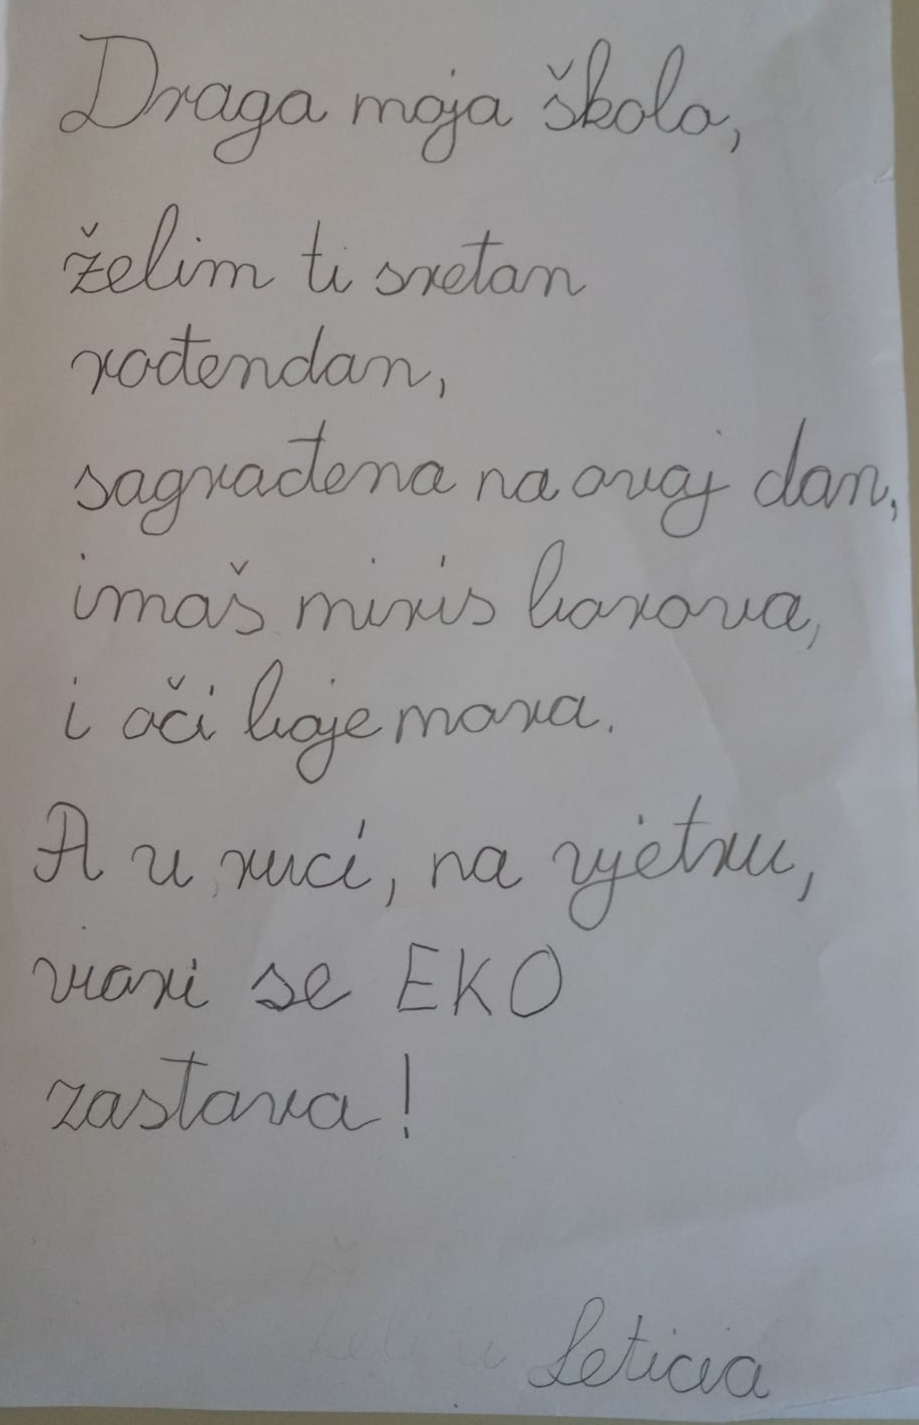 Draga moja školo,
želim ti sretan
rođendan,
sagrađena na ovaj dan,
imaš miris borova,
i oči boje mora.
A u ruci, na vjetru,
viori se EKO
zastava!
Leticia